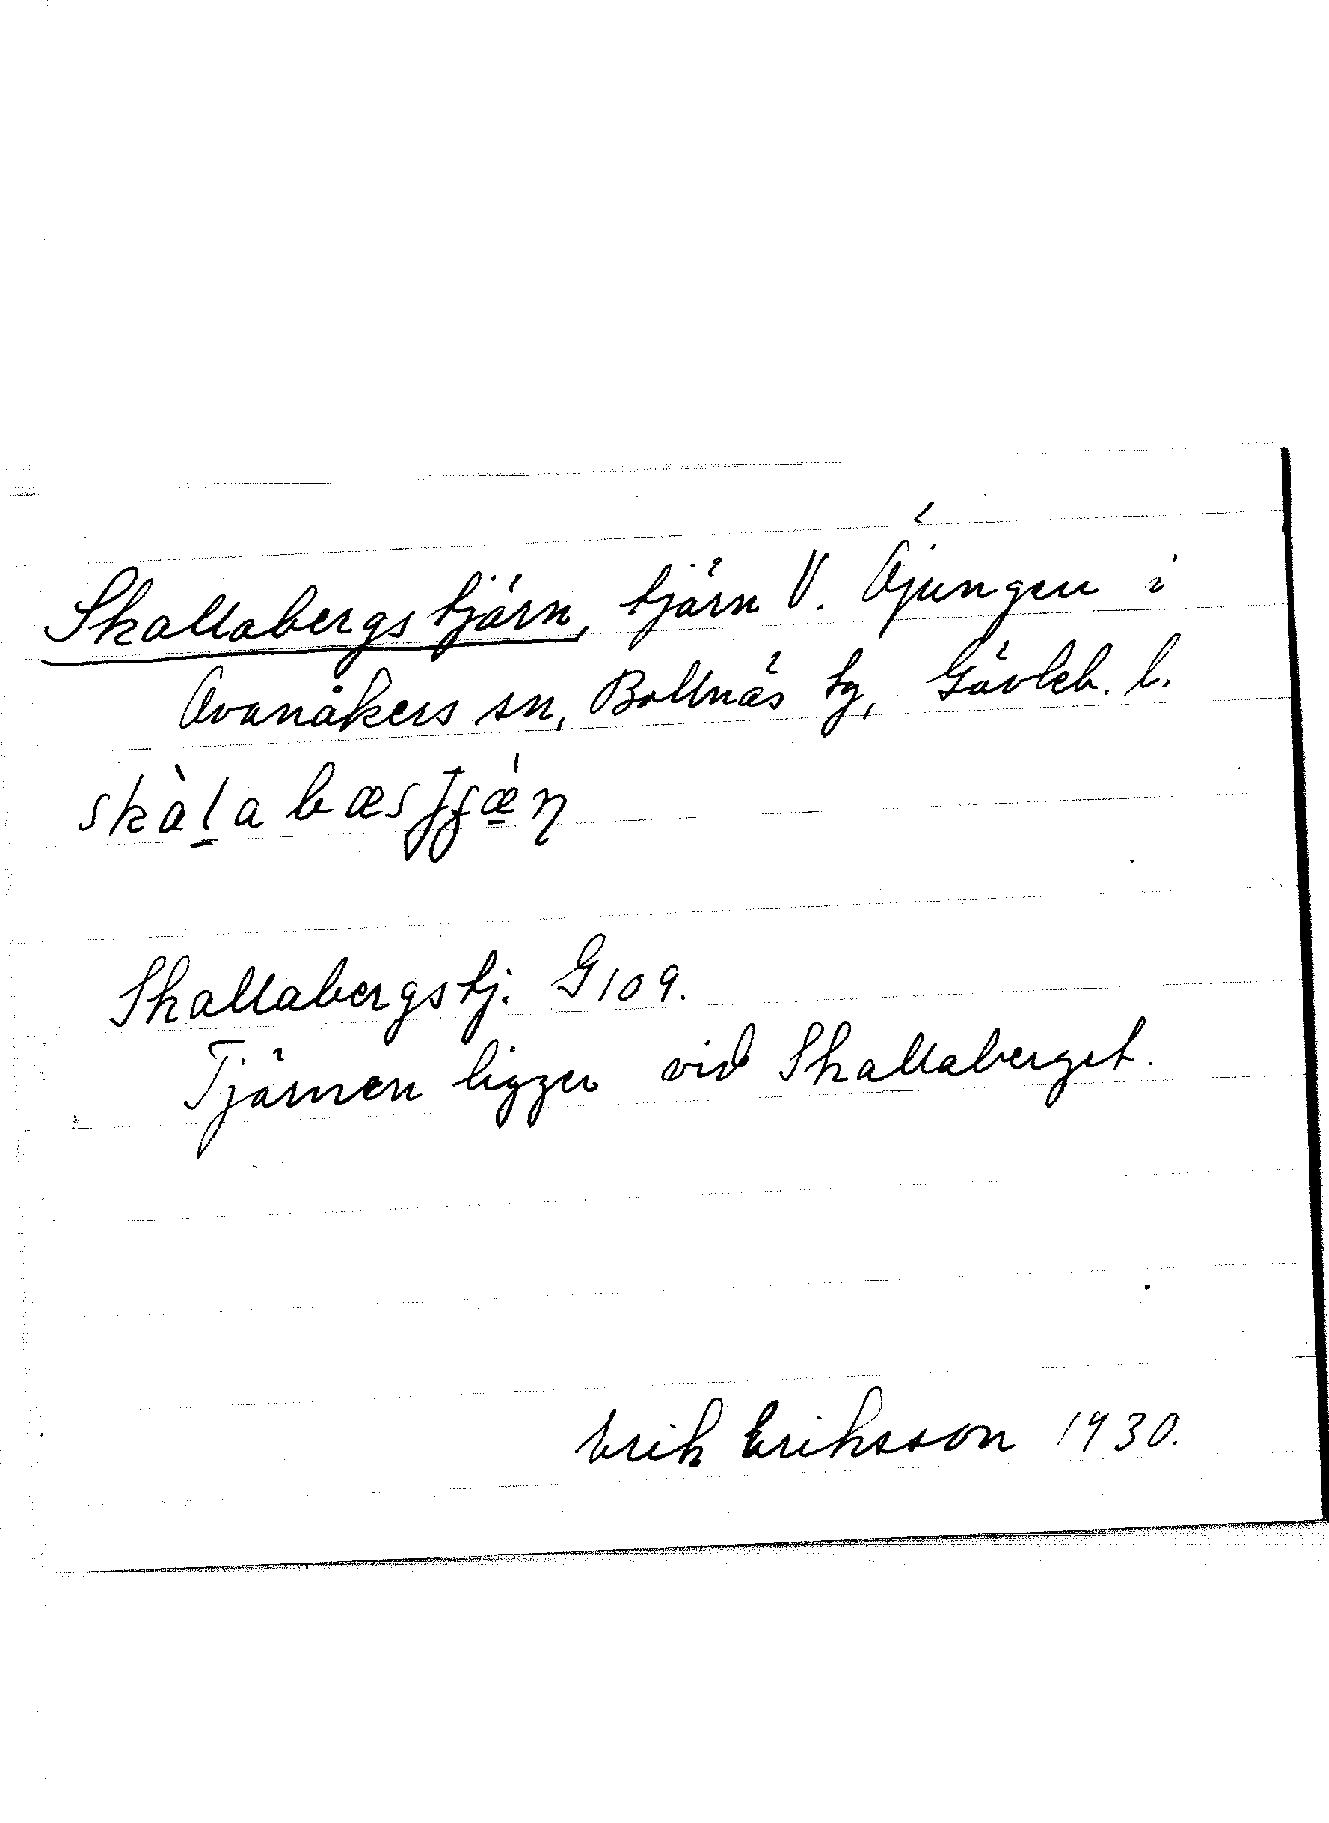 Skallabergstjärn, tjärn V. Öjungen i
Ovanåkers sn, Bollnäs tg, Gävleb. l.
Skallabergstj. G 109.
Tjärnen ligger vid Skallaberget.
Erik Eriksson 1930.